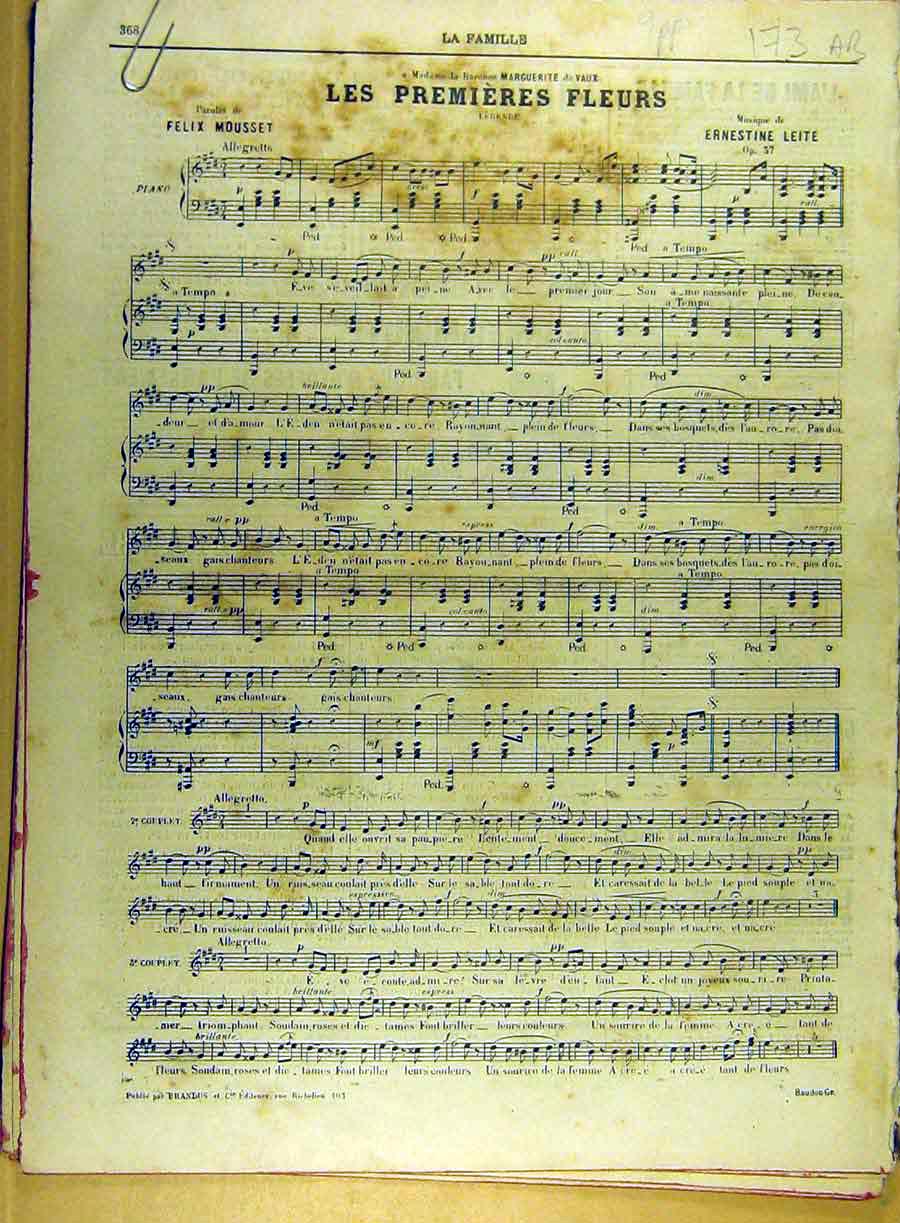 368
LA FAMILLE
173 AB
a Madame la Baronne MARGUERITE de VAUX
LES PREMIÈRES FLEURS
LÉGENDE
Paroles de
FELIX MOUSSET
Musique de
ERNESTINE LEITE
Op. 37
Allegretto
PIANO
p f p rall.
Ped Ped Ped Ped a Tempo
p f pp rall.
È_ve s'é_veil_lait à pei_ne A_vec le_ premier jour_ Son â_me naissante plei_ne, De can_
a Tempo a Tempo
p col canto
Ped. Ped
pp brillante f dim.
_deur_ et d'a_mour L'É_den n'était pas en_co_re Rayon_nant,_ plein de fleurs,_ Dans ses bosquets, dès l'au_ro_re, Pas d'oi_
dim.
Ped Ped
rall e pp a Tempo express f dim. a Tempo
_seaux gais chanteurs L'É_den n'était pas en_co_re Rayon_nant_ plein de fleurs,_ Dans ses bosquets, dès l'au_ro_re, pas d'oi_
a Tempo a Tempo
rall e pp col canto dim.
Ped. Ped Ped Ped.
f
_seaux, gais chanteurs gais chanteurs
mf p
Ped.
Allegretto.
2e COUPLET. p f pp
Quand elle ouvrit sa pau_piè_re Lente_ment, douce_ment, Elle ad_mira la lu_miè_re Dans le
pp f dim pp
haut_ firmament, Un ruis_seau coulait près d'elle Sur le sa_ble tout do_ré_ Et caressait de la bel_le Le pied souple et na_
expressivo dim.
_cré_ Un ruisseau coulait près d'elle Sur le sa_ble tout do_ré_ Et caressait de la belle Le pied souple et nacré, et nacré
Allegretto.
3e COUPLET. p pp
È_ve é_coute, ad_mire! Sur sa lè_vre d'en_fant_ É_clot un joyeux sou_ri_re Printa_
brillante express f
_nier_ triom_phant, Soudain, roses et dic_tames Font briller_ leurs couleurs Un sourire de la femme A cré_é_ tant de
brillante
fleurs, Soudain, roses et dic_tames Font briller leurs couleurs Un sourire de la femme A cré_é a cré_é tant de fleurs
Publié par BRANDUS et Cie Éditeurs, rue Richelieu 103
Baudon Gr.